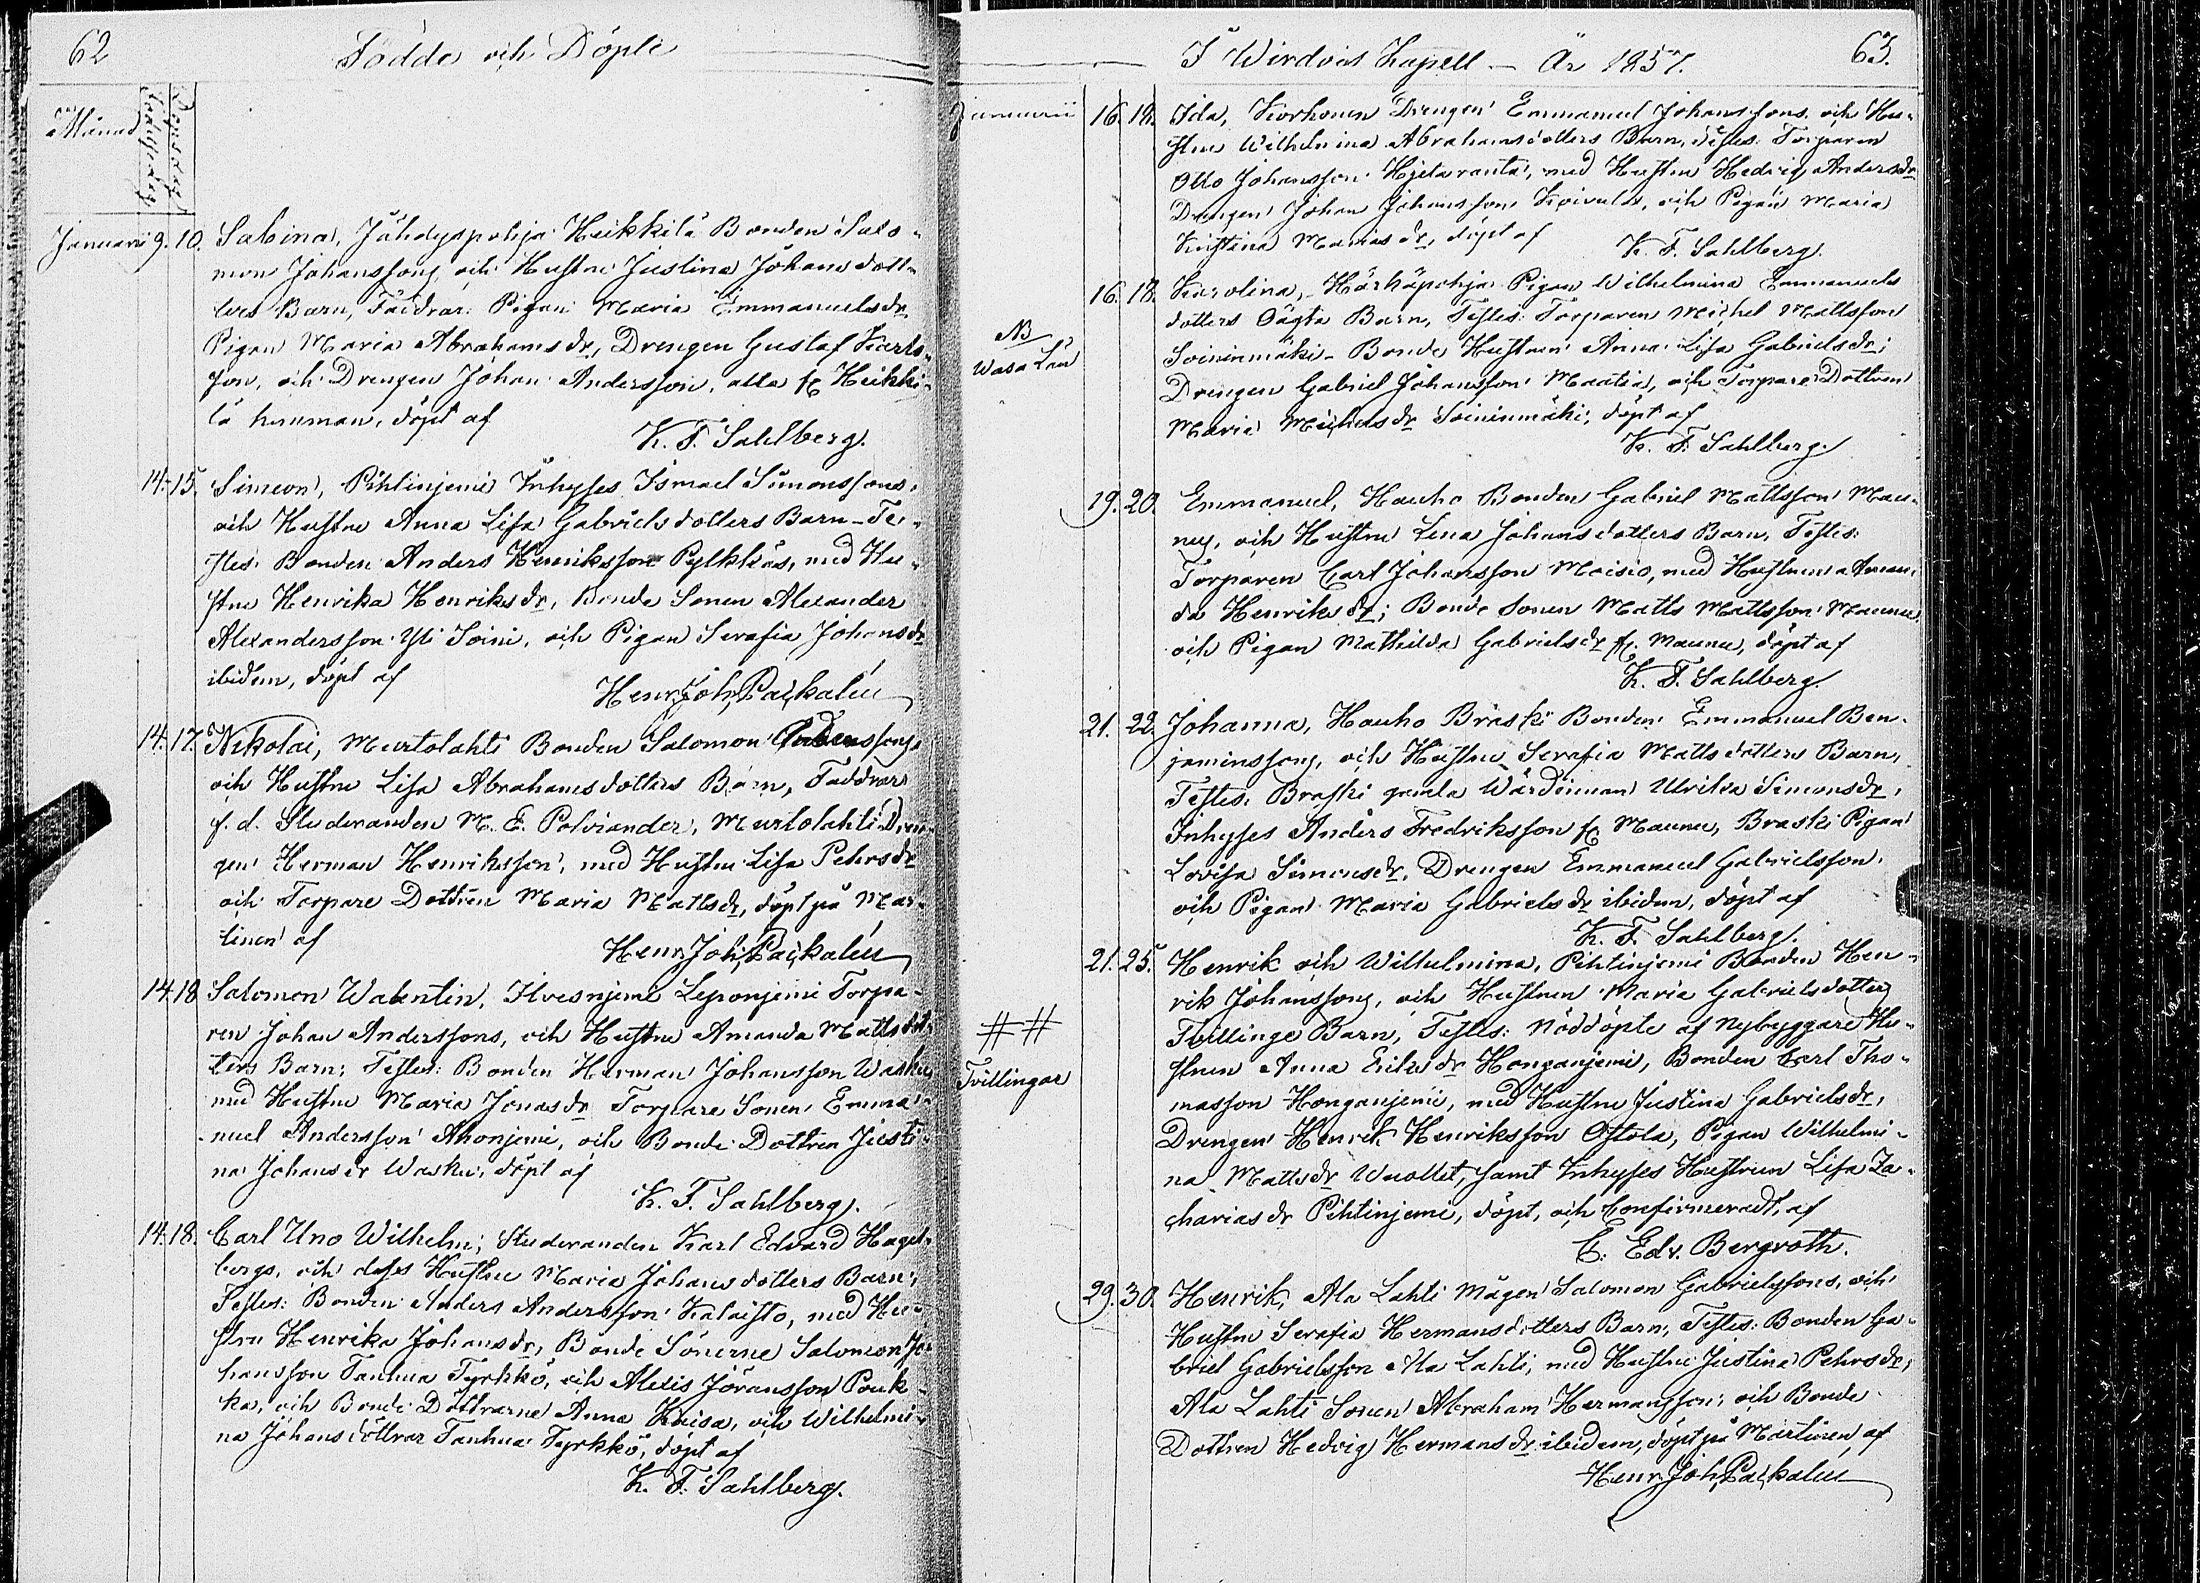 62
Födde och Döpte
Månad
Födelsedag
Döpelsedag
Januarii 9. 10. Sabina, Jähdyspohja Heikkilä Bonden Salo-
mon Johanssons och Hustru Justina Johansdott-
ters Barn, Faddrar: Pigan Maria Emmanuelsdr,
Pigan Maria Abrahamsdr, Drengen Gustaf Karls-
son, och Drengen Johan Andersson, alla fr Heikki-
lä hemman, döpt af
K. F. Sahlberg.
14. 15. Simeon, Pihlinjemi Inhyses Ismael Simonssons,
och Hustru Anna Lisa Gabrielsdotters Barn - Te-
stes: Bonden Anders Henriksson Pylkkäs, med Hu-
stru Henrika Henriksdr, Bonde Sonen Alexander
Alexandersson Yli Soini, och Pigan Serafia Johansdr
ibidem, döpt af
Henr. Joh. Paçkalén
14. 17. Nikolai, Murtolahti Bonden Salomon
och Hustru Lisa Abrahamsdotters Barn, Faddrar
f. d. Studeranden M. E. Polviander, Murtolahti Dren-
gen Herman Henriksson, med Hustru Lisa Pehrsdr
och Torpare Dottren Maria Mattsdr, döpt på Mar-
tinen af
Henr. Joh. Paçkalén
14. 18. Salomon Walentin, Ilvesnjemi Leponjemi Torpa-
ren Johan Anderssons, och Hustru Amanda Mattsdot-
ters Barn; Testes: Bonden Herman Johansson Wasku
med Hustru Maria Jonasdr Torpare Sonen Emma-
nuel Andersson Ahonjemi, och Bonde Dottren Justi-
na Johansdr Wasku, döpt af
K. F. Sahlberg.
14. 18. Carl Uno Wilhelm; Studeranden Karl Edvard Hagel-
bergs, och dess Hustru Maria Johansdotters Barn;
Testes: Bonden Anders Andersson Kalaisto, med Hu-
stru Henrika Johansdr, Bonde Sönerne Salomon Jo-
hansson Tanhua Tyrkkö, och Alexis Jöransson Pouk-
ka, och Bonde Döttrarne Anna Kaisa, och Wilhelmi-
na Johansdöttrar Tanhua Tyrkkö, döpt af
K. F. Sahlberg.
I Wirdois Kapell — År 1857. 63.
Januarii 16. 18. Ida, Korhonen Drengen Emmanuel Johanssons och Hu-
stru Wilhelmina Abrahamsdotters Barn, Testes: Torparen
Otto Johansson Hjetaranta, med Hustru Hedvig Andersdr
Drengen Johan Johansson Koivula, och Pigan Maria
Kristina Mariasdr, döpt af
K. F. Sahlberg.
NB
Wasa Län
16. 18. Karolina, Härkäpohja Pigan Wilhelmina Emmanuels
dotters Oägta Barn, Testes: Torparen Michel Mattsson
Soininmäki - Bonde Hustrun Anna Lisa Gabrielsdr;
Drengen Gabriel Johansson Maatia, och Torpare Dottren
Maria Michelsdr Soininmäki; döpt af
K. F. Sahlberg.
19. 20. Emmanuel, Hauho Bonden Gabriel Mattsson Mau-
nus, och Hustru Lena Johansdotters Barn, Testes:
Torparen Carl Johansson Moisio, med Hustrun Aman-
da Henriksdr; Bonde Sonen Matts Mattsson Maunu
och Pigan Mathilda Gabrielsdr fr. Maunu, döpt af
K. F. Sahlberg.
21. 22. Johanna, Hauho Bräski Bonden Emmanuel Ben-
jaminssons, och Hustru Serafia Mattsdotters Barn,
Testes: Braski gamla Wärdinnan Ulrika Simonsdr,
Inhyses Anders Fredriksson fr Maunu, Braski Pigan
Lovisa Simonsdr, Drengen Emmanuel Gabrielsson,
och Pigan Maria Gabrielsdr ibidem, döpt af
K. F. Sahlberg.
##
Tvillingar
21. 25. Henrik och Wilhelmina, Pihlinjemi Bonden Hen-
rik Johanssons, och Hustrun Maria Gabrielsdotters
Tvillinge Barn, Testes: Nöddöpte af Nybyggare Hu-
strun Anna Eriksdr Honganjemi, Bonden Carl Tho-
masson Honganjemi, med Hustru Justina Gabrielsdr,
Drengen Henrik Henriksson Ostola, Pigan Wilhelmi-
na Mattsdr Wuollet, samt Inhyses Hustrun Lisa Za-
chariasdr Pihlinjemi, döpt, och Confirmeradt, af
C. Edv. Bergroth.
29. 30. Henrik, Ala Lahti Mågen Salomon Gabrielssons, och
Hustru Serafia Hermansdotters Barn, Testes: Bonden Ga-
briel Gabrielsson Ala Lahti, med Hustru Justina Pehrsdr;
Ala Lahti Sonen Abraham Hermansson, och Bonde
Dottren Hedvig Hermansdr ibidem, döpt på Martinen, af
Henr. Joh. Paçkalén